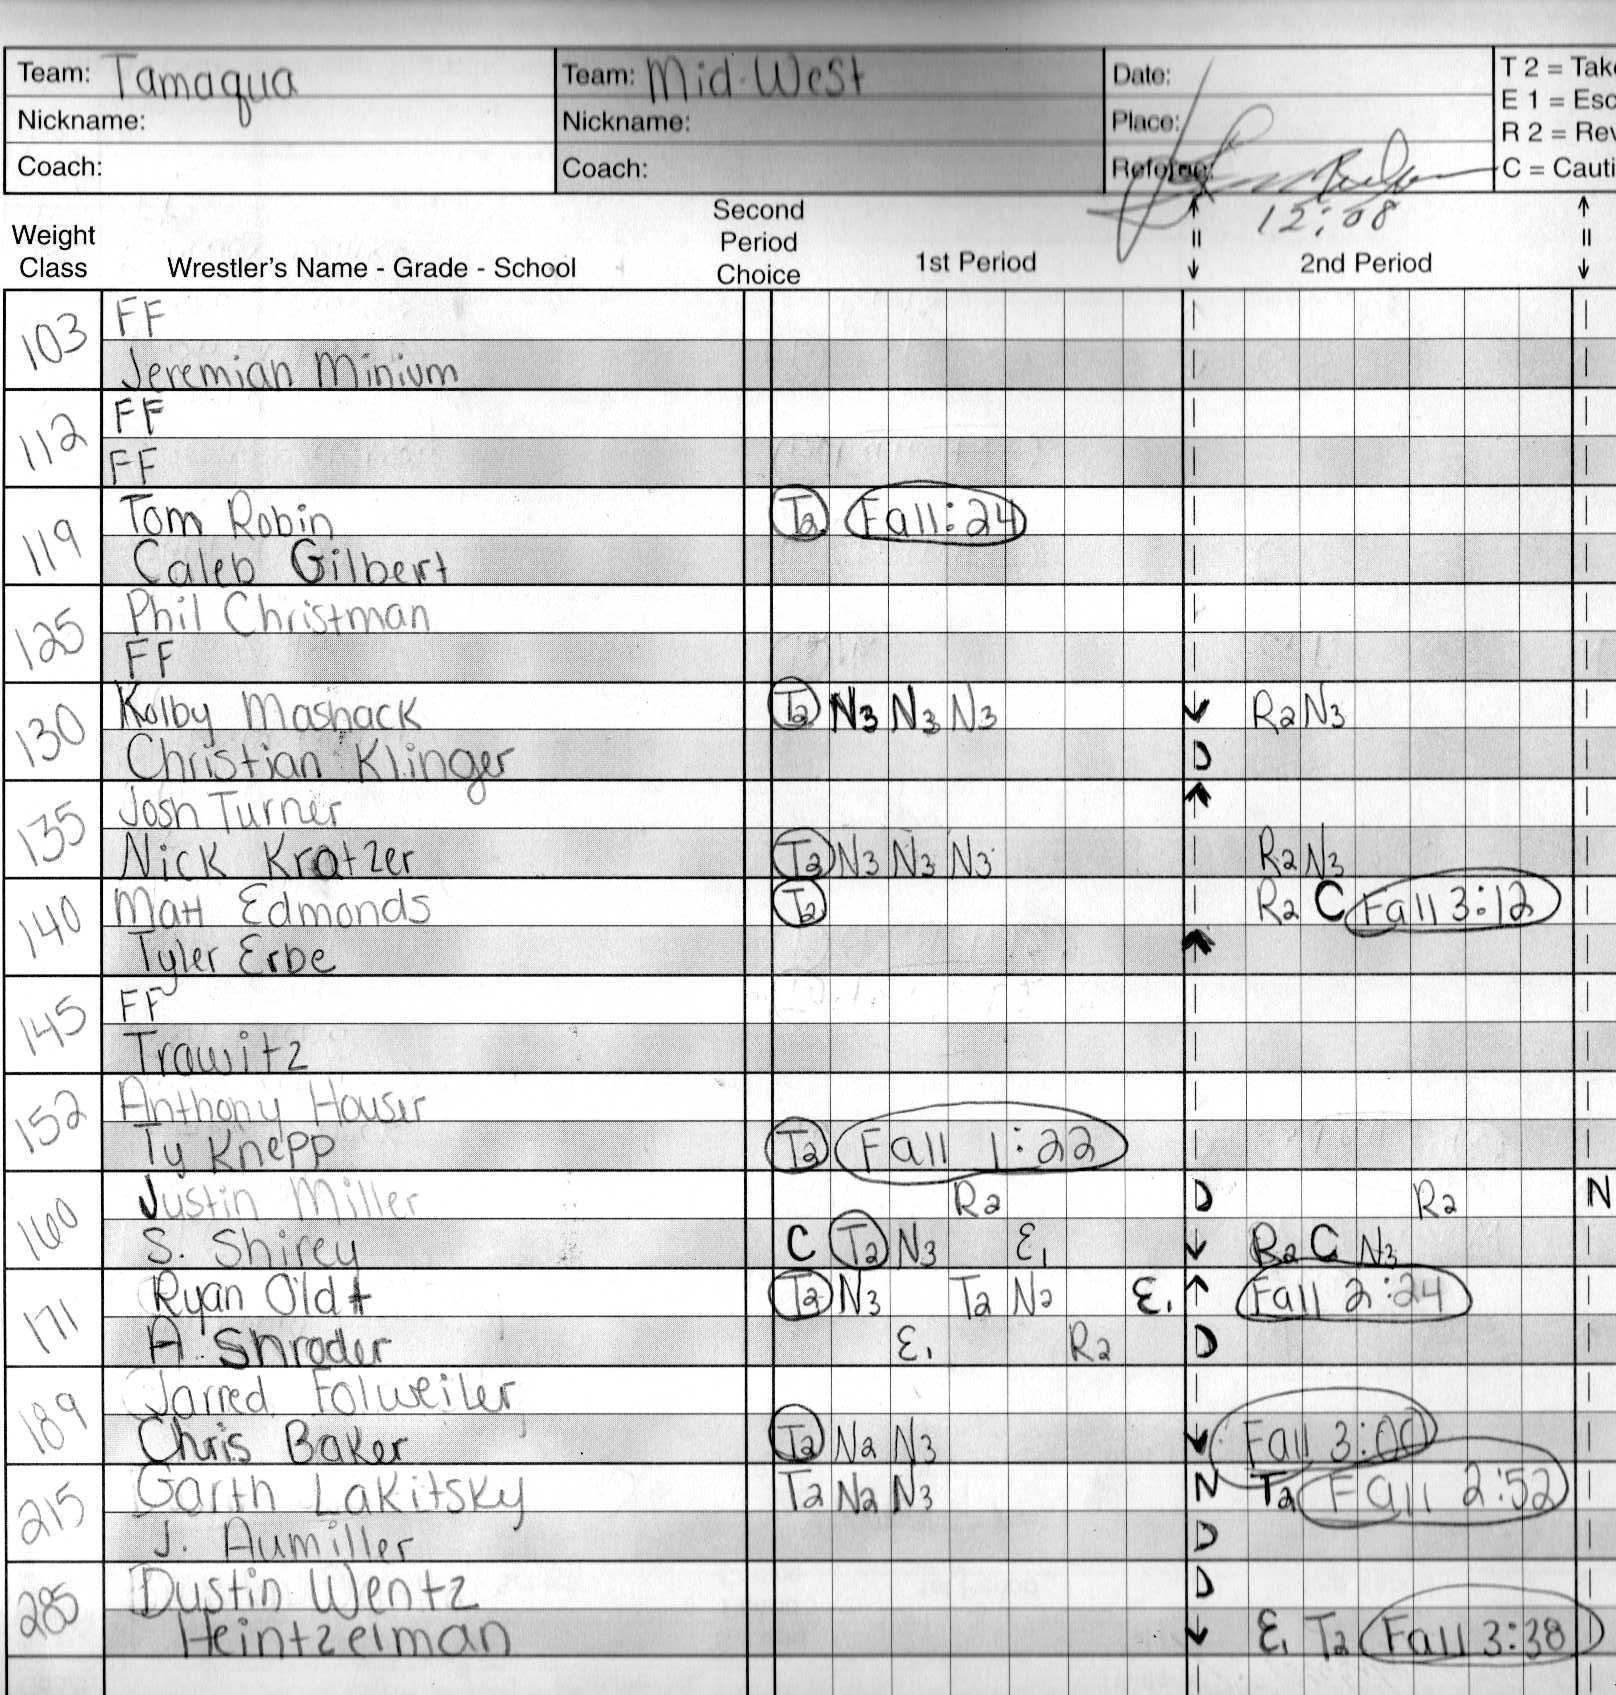 Team: Tamaqua Team: Mid-West Date: T 2 = Take
Nickname: Nickname: Place: E 1 = Esc
R 2 = Rev
Coach: Coach: Referee: C = Cauti
12:08
Weight Class Wrestler's Name - Grade - School Second Period Choice 1st Period ↑ = ↓ 2nd Period ↑ = ↓
103 FF
Jeremian Minium
112 FF
FF
119 Tom Robin T2 Fall :24
Caleb Gilbert
125 Phil Christman
FF
130 Kolby Mashack T2 N3 N3 N3 ↓ R2 N3
Christian Klinger D
135 Josh Turner ↑
Nick Kratzer T2 N3 N3 N3 R2 N3
140 Matt Edmonds T2 R2 C Fall 3:12
Tyler Erbe ↑
145 FF
Trawitz
152 Anthony Houser
Ty Knepp T2 Fall 1:22
160 Justin Miller R2 D R2 N
S. Shirey C T2 N3 E1 ↓ R2 C N3
171 Ryan Oldt T2 N3 T2 N2 E1 ↑ Fall 2:24
A. Shroder E1 R2 D
189 Jarred Folweiler
Chris Baker T2 N2 N3 ↓ Fall 3:00
215 Garth Lakitsky T2 N2 N3 N T2 Fall 2:52
J. Aumiller D
285 Dustin Wentz D
Heintzelman ↓ E1 T2 Fall 3:38